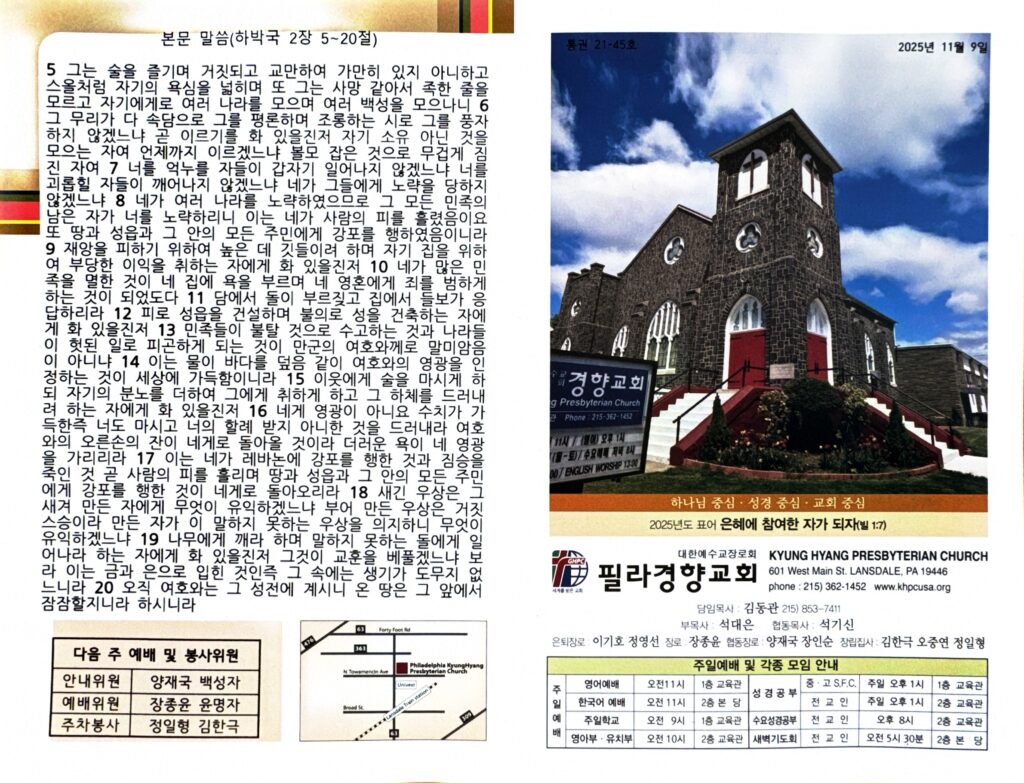 본문 말씀(하박국 2장 5~20절)
5 그는 술을 즐기며 거짓되고 교만하여 가만히 있지 아니하고
스올처럼 자기의 욕심을 넓히며 또 그는 사망 같아서 족한 줄을
모르고 자기에게로 여러 나라를 모으며 여러 백성을 모으나니 6
그 무리가 다 속담으로 그를 평론하며 조롱하는 시로 그를 풍자
하지 않겠느냐 곧 이르기를 화 있을진저 자기 소유 아닌 것을
모으는 자여 언제까지 이르겠느냐 볼모 잡은 것으로 무겁게 짐
진 자여 7 너를 억누를 자들이 갑자기 일어나지 않겠느냐 너를
괴롭힐 자들이 깨어나지 않겠느냐 네가 그들에게 노략을 당하지
않겠느냐 8 네가 여러 나라를 노략하였으므로 그 모든 민족의
남은 자가 너를 노략하리니 이는 네가 사람의 피를 흘렸음이요
또 땅과 성읍과 그 안의 모든 주민에게 강포를 행하였음이니라
9 재앙을 피하기 위하여 높은 데 깃들이려 하며 자기 집을 위하
여 부당한 이익을 취하는 자에게 화 있을진저 10 네가 많은 민
족을 멸한 것이 네 집에 욕을 부르며 네 영혼에게 죄를 범하게
하는 것이 되었도다 11 담에서 돌이 부르짖고 집에서 들보가 응
답하리라 12 피로 성읍을 건설하며 불의로 성을 건축하는 자에
게 화 있을진저 13 민족들이 불탈 것으로 수고하는 것과 나라들
이 헛된 일로 피곤하게 되는 것이 만군의 여호와께로 말미암음
이 아니냐 14 이는 물이 바다를 덮음 같이 여호와의 영광을 인
정하는 것이 세상에 가득함이니라 15 이웃에게 술을 마시게 하
되 자기의 분노를 더하여 그에게 취하게 하고 그 하체를 드러내
려 하는 자에게 화 있을진저 16 네게 영광이 아니요 수치가 가
득한즉 너도 마시고 너의 할례 받지 아니한 것을 드러내라 여호
와의 오른손의 잔이 네게로 돌아올 것이라 더러운 욕이 네 영광
을 가리리라 17 이는 네가 레바논에 강포를 행한 것과 짐승을
죽인 것 곧 사람의 피를 흘리며 땅과 성읍과 그 안의 모든 주민
에게 강포를 행한 것이 네게로 돌아오리라 18 새긴 우상은 그
새겨 만든 자에게 무엇이 유익하겠느냐 부어 만든 우상은 거짓
스승이라 만든 자가 이 말하지 못하는 우상을 의지하니 무엇이
유익하겠느냐 19 나무에게 깨라 하며 말하지 못하는 돌에게 일
어나라 하는 자에게 화 있을진저 그것이 교훈을 베풀겠느냐 보
라 이는 금과 은으로 입힌 것인즉 그 속에는 생기가 도무지 없
느니라 20 오직 여호와는 그 성전에 계시니 온 땅은 그 앞에서
잠잠할지니라 하시니라
다음 주 예배 및 봉사위원
안내위원 양재국 백성자
예배위원 장종윤 윤명자
주차봉사 정일형 김한극
63
Forty Foot Rd
476
363
N. Towamencin Ave
Philadelphia KyungHyang
Presbyterian Church
Univest
Broad St.
Lansdale Train station
309
63
통권 21-45호
2025년 11월 9일
경향교회
ng Presbyterian Church
Phone : 215-362-1452
ENGLISH WORSHIP 13:00
하나님 중심 · 성경 중심 · 교회 중심
2025년도 표어 은혜에 참여한 자가 되자(빌 1:7)
GMPC
세계를 품은 교회
대한예수교장로회
필라경향교회
KYUNG HYANG PRESBYTERIAN CHURCH
601 West Main St. LANSDALE, PA 19446
phone : 215) 362-1452 www.khpcusa.org
담임목사 : 김동관 215) 853-7411
부목사 : 석대은 협동목사 : 석기신
은퇴장로 : 이기호 정영선 장로 : 장종윤 협동장로 : 양재국 장인순 장립집사 : 김한극 오중연 정일형
주일예배 및 각종 모임 안내
주일예배 영어예배 오전11시 1층 교육관 성경공부 중·고 S.F.C. 주일 오후 1시 1층 교육관
한국어 예배 오전 11시 2층 본 당 전 교 인 주일 오후 1시 2층 교육관
주일학교 오전 9시 1층 교육관 수요성경공부 전 교 인 오후 8시 2층 교육관
영아부 · 유치부 오전 10시 2층 교육관 새벽기도회 전 교 인 오전 5시 30분 2층 본 당